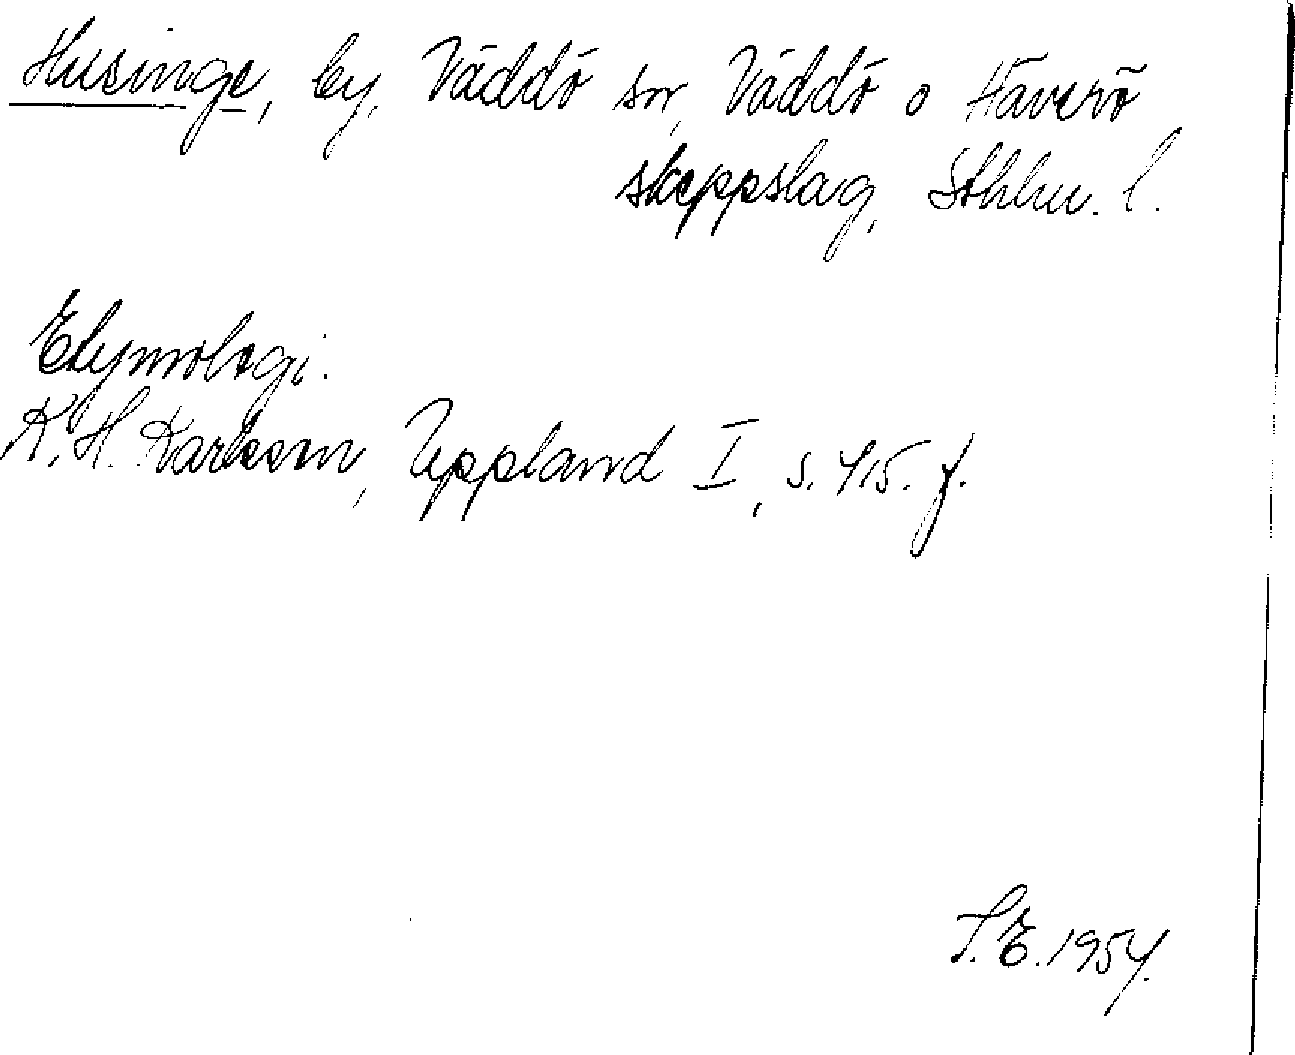 Husinge, by, Väddö sn, Väddö o Häverö
skeppslag, Sthlm. l.
Etymologi.
K. H. Karlsson, Uppland I, s. 415. f.
S. E. 1954.